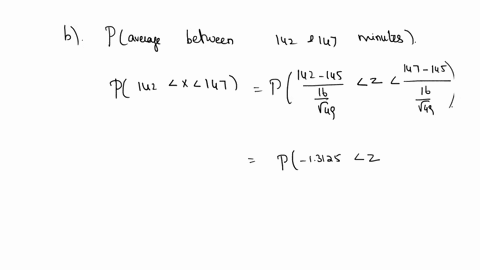 b). P(average between 142 & 147 minutes).
P( 142 < x < 147) = P( (142-145)/(16/√49) < Z < (147-145)/(16/√49) )
= P( -1.3125 < Z